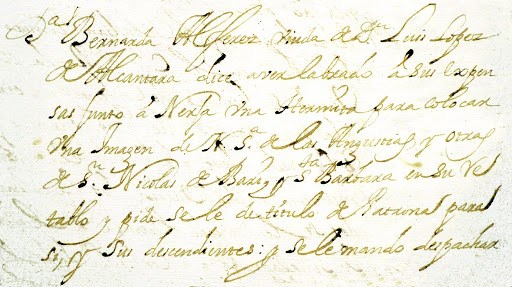 D.ª Bernarda Alferez viuda de D.n Luis Lopez
de Alcantara dice aver labrado â sus expen
sas junto â Nerja una Hermita para colocar
una Imagen de N. S.ª de las Angustias y otras
de S.n Nicolas de Bari, y S.ta Barbara en su Re
tablo y pide se le de titulo de Patrona para
si, y sus descendientes: y se le mando despachar